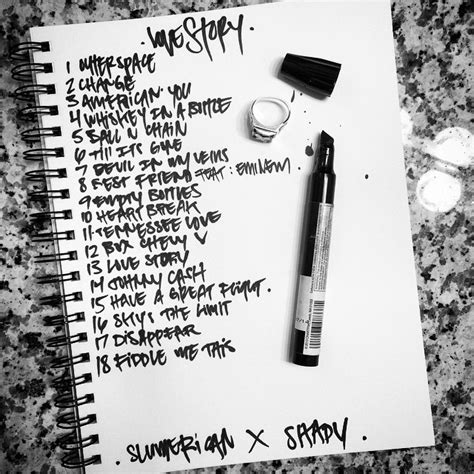 .LOVE STORY.
1 OUTERSPACE
2 CHANGE
3 AMERICAN YOU
4 WHISKEY IN A BOTTLE
5 BALL N CHAIN
6 TILL ITS GONE
7 DEVIL IN MY VEINS
8 BEST FRIEND FEAT: EMINEM
9 EMPTY BOTTLES
10 HEART BREAK
11 TENNESSEE LOVE
12 BOX CHEVY V
13 LOVE STORY
14 JOHNNY CASH
15 HAVE A GREAT FLIGHT.
16 SKY'S THE LIMIT
17 DISAPPEAR
18 FIDDLE ME THIS
.SLUMERICAN X SHADY.